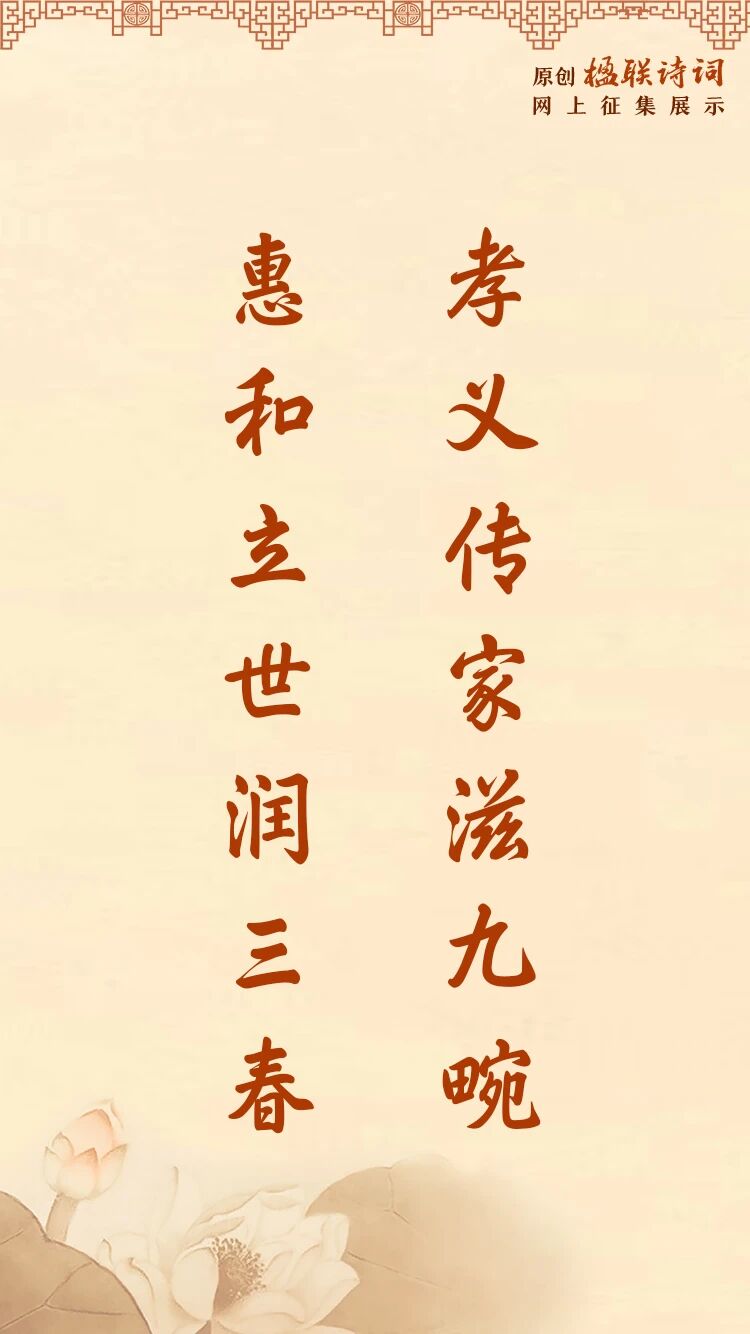 原创 楹联诗词
网上征集展示
孝义传家滋九畹
惠和立世润三春